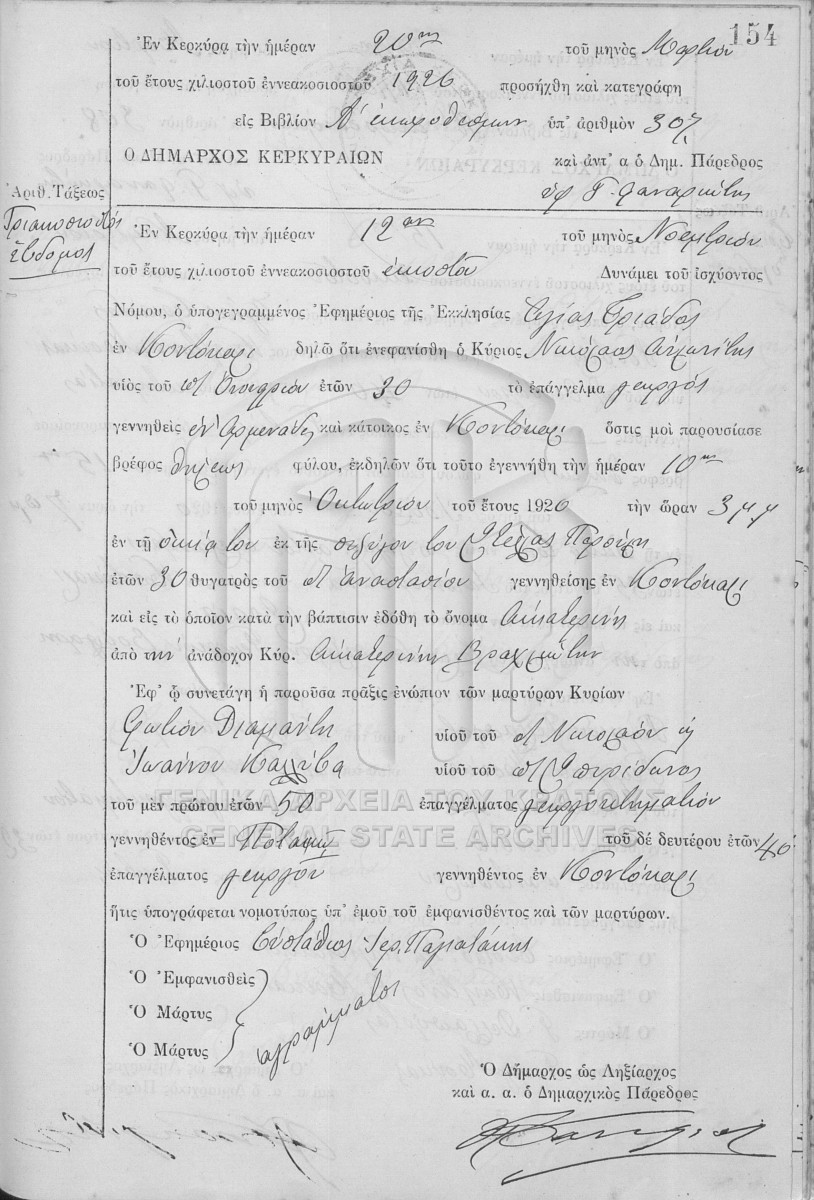 154
Ἐν Κερκύρᾳ τὴν ἡμέραν 20ην τοῦ μηνὸς Μαρτίου
τοῦ ἔτους χιλιοστοῦ ἐννεακοσιοστοῦ 1926 προσήχθη καὶ κατεγράφη
εἰς Βιβλίον Α' ἐκπροθέσμων ὑπ' ἀριθμὸν 307
Ο ΔΗΜΑΡΧΟΣ ΚΕΡΚΥΡΑΙΩΝ καὶ ἀντ' α ὁ Δημ. Πάρεδρος
Ἀριθ. Τάξεως
Τριακοσιοστὸς
ἕβδομος
Ἐν Κερκύρᾳ τὴν ἡμέραν 12ην τοῦ μηνὸς Νοεμβρίου
τοῦ ἔτους χιλιοστοῦ ἐννεακοσιοστοῦ εἰκοστοῦ Δυνάμει τοῦ ἰσχύοντος
Νόμου, ὁ ὑπογεγραμμένος Ἐφημέριος τῆς Ἐκκλησίας Ἁγίας Τριάδος
ἐν Κοντόκαλι δηλῶ ὅτι ἐνεφανίσθη ὁ Κύριος Νικόλαος
υἱὸς τοῦ ποτὲ ἐτῶν 30 τὸ ἐπάγγελμα γεωργός
γεννηθεὶς ἐν Ἀρμενάδες καὶ κάτοικος ἐν Κοντόκαλι ὅστις μοὶ παρουσίασε
βρέφος θήλεως φύλου, ἐκδηλῶν ὅτι τοῦτο ἐγεννήθη τὴν ἡμέραν 10ην
τοῦ μηνὸς Ὀκτωβρίου τοῦ ἔτους 1920 τὴν ὥραν 3 μ μ
ἐν τῇ οἰκίᾳ του ἐκ τῆς συζύγου του Στέλλας
ἐτῶν 30 θυγατρὸς τοῦ ποτὲ Ἀναστασίου γεννηθείσης ἐν Κοντόκαλι
καὶ εἰς τὸ ὁποῖον κατὰ τὴν βάπτισιν ἐδόθη τὸ ὄνομα Αἰκατερίνη
ἀπὸ τὴν ἀνάδοχον Κύρ. Αἰκατερίνην
Ἐφ' ᾧ συνετάγη ἡ παροῦσα πρᾶξις ἐνώπιον τῶν μαρτύρων Κυρίων
Φωτίου Διαμάντη υἱοῦ τοῦ ποτὲ Νικολάου
Ἰωάννου Καλύβα υἱοῦ τοῦ ποτὲ Σπυρίδωνος
τοῦ μὲν πρώτου ἐτῶν 50 ἐπαγγέλματος γεωργοκτηματίου
ΓΕΝΙΚΑ ΑΡΧΕΙΑ ΤΟΥ ΚΡΑΤΟΥΣ
GENERAL STATE ARCHIVES
γεννηθέντος ἐν Ποταμῷ τοῦ δὲ δευτέρου ἐτῶν 40
ἐπαγγέλματος γεωργοῦ γεννηθέντος ἐν Κοντόκαλι
ἥτις ὑπογράφεται νομοτύπως ὑπ' ἐμοῦ τοῦ ἐμφανισθέντος καὶ τῶν μαρτύρων.
Ὁ Ἐφημέριος Εὐστάθιος Ἱερ.
Ὁ Ἐμφανισθεὶς
Ὁ Μάρτυς ἀγράμματοι
Ὁ Μάρτυς
Ὁ Δήμαρχος ὡς Ληξίαρχος
καὶ α. α. ὁ Δημαρχικὸς Πάρεδρος